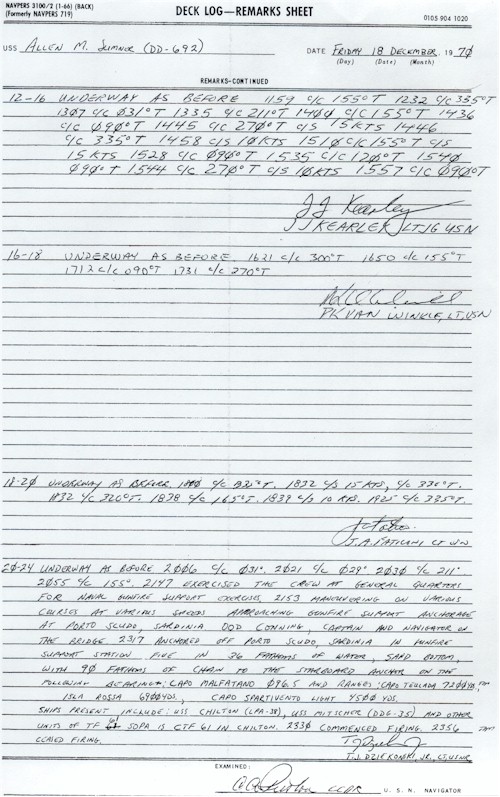 NAVPERS 3100/2 (1-66) (BACK)
(Formerly NAVPERS 719)
DECK LOG—REMARKS SHEET
0105 904 1020
USS ALLEN M. SUMNER (DD-692)
DATE FRIDAY 18 DECEMBER, 1970
(Day) (Date) (Month)
REMARKS-CONTINUED
12-16 UNDERWAY AS BEFORE 1159 c/c 155°T 1232 c/c 335°T
1307 c/c 031°T 1335 c/c 211°T 1400 c/c 155°T 1436
c/c 090°T 1445 c/c 270°T c/s 15 KTS 1446
c/c 335°T 1458 c/s 10 KTS 1510 c/c 155°T c/s
15 KTS 1528 c/c 090°T 1535 c/c 120°T 1540
090°T 1544 c/c 270°T c/s 10 KTS 1557 c/c 090°T
J J Kearley
J J KEARLEY LTJG USN
16-18 UNDERWAY AS BEFORE. 1621 c/c 300°T 1650 c/c 155°T
1712 c/c 090°T 1731 c/c 270°T
PK VAN WINKLE, LT, USN
18-20 UNDERWAY AS BEFORE. c/c 1832 c/s 15 KTS, c/c 330°T.
1832 c/c 320°T. 1838 c/c 165°T. 1839 c/s 10 KTS. 1925 c/c 335°T.
J.A.
20-24 UNDERWAY AS BEFORE 2006 c/c 031°. 2021 c/c 029°. 2030 c/c 211°
2055 c/c 155°. 2147 EXERCISED THE CREW AT GENERAL QUARTERS
FOR NAVAL GUNFIRE SUPPORT EXERCISES, 2153 MANEUVERING ON VARIOUS
COURSES AT VARIOUS SPEEDS APPROACHING GUNFIRE SUPPORT ANCHORAGE
AT PORTO SCUDO, SARDINIA OOD CONNING, CAPTAIN AND NAVIGATOR ON
THE BRIDGE 2317 ANCHORED OFF PORTO SCUDO, SARDINIA IN GUNFIRE
SUPPORT STATION FIVE IN 36 FATHOMS OF WATER, SAND BOTTOM,
WITH 90 FATHOMS OF CHAIN TO THE STARBOARD ANCHOR ON THE
FOLLOWING BEARINGS: CAPO MALFATANO 096.5 AND RANGES: CAPO TEULADA 7200 YDS,
ISLA ROSSA 6900 YDS., CAPO SPARTIVENTO LIGHT 4500 YDS.
SHIPS PRESENT INCLUDE: USS CHILTON (LPA-38), USS MITSCHER (DDG-35) AND OTHER
UNITS OF TF 61 SOPA IS CTF 61 IN CHILTON. 2330 COMMENCED FIRING. 2356
CEASED FIRING.
T.J. DZIEKONSKI, JR., LT, USNR
EXAMINED:
LCDR U. S. N. NAVIGATOR